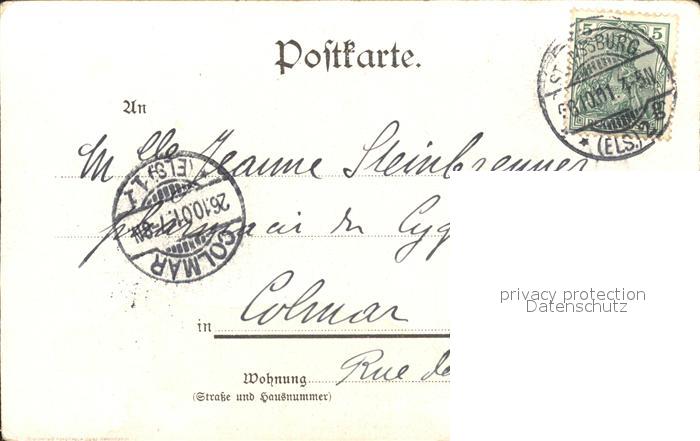 Postkarte.
5 5
STRASSBURG
26.10.01. 7-8N
* (ELS.) 2 g
An
Mlle Jeanne Steinbrenner
(ELS.) * 1
26.10.01. 7-8N
COLMAR
pharmacie du Cyg
privacy protection
Datenschutz
in Colmar
Wohnung Rue de
(Straße und Hausnummer)